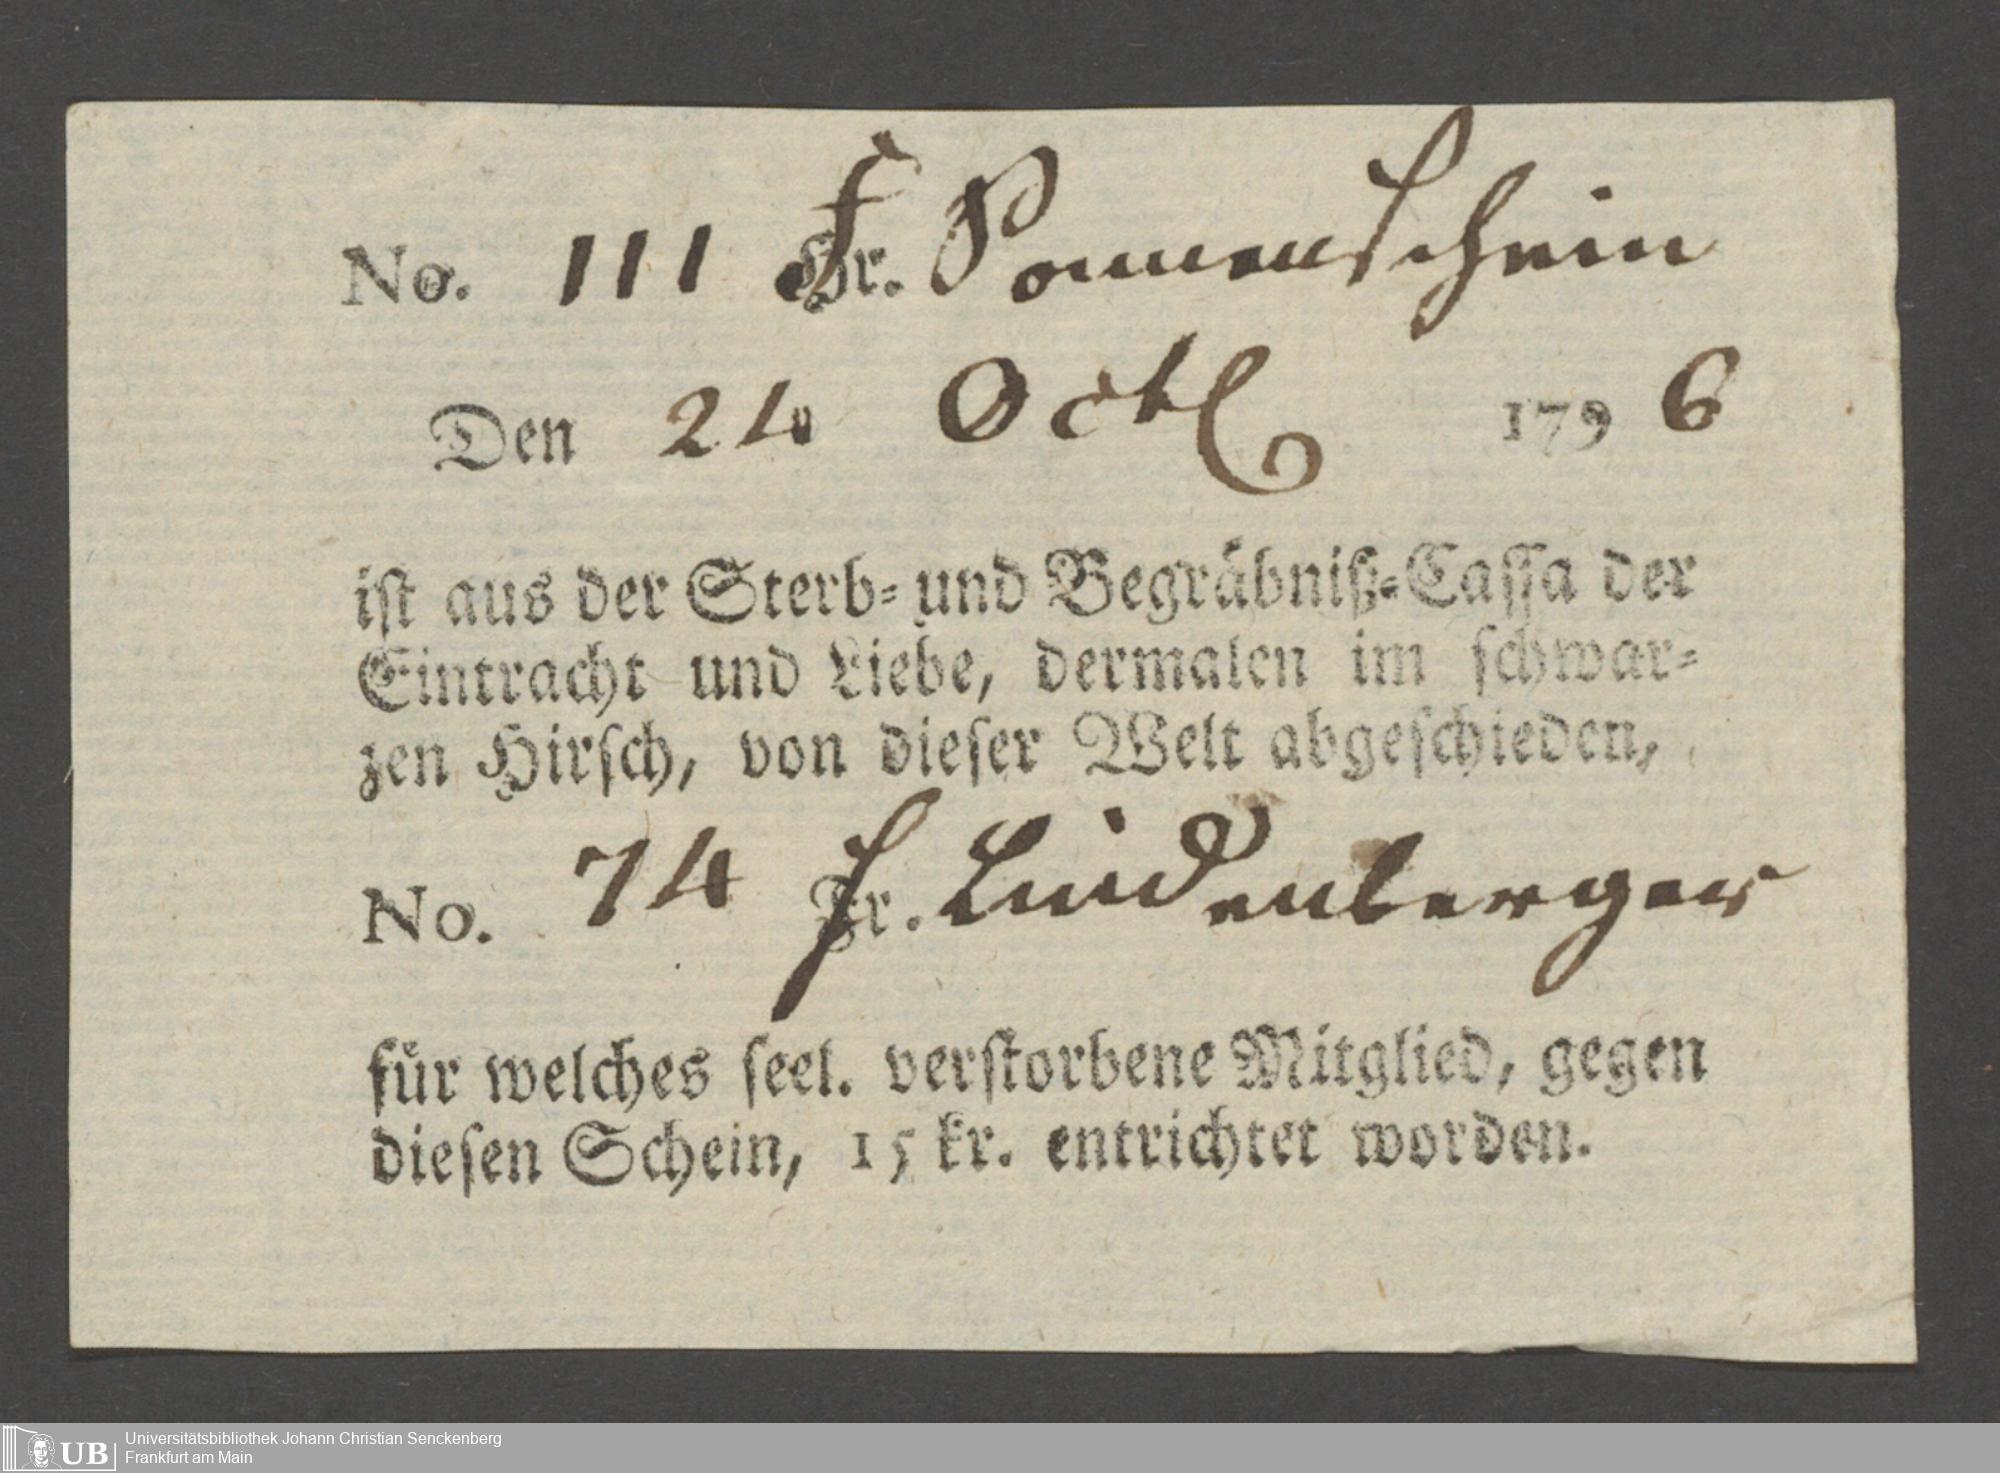 No. 111 Hr. Sonnenschein
Den 24 Octb 1796
ist aus der Sterb- und Begräbniß-Cassa der
Eintracht und Liebe, dermalen im schwar-
zen Hirsch, von dieser Welt abgeschieden,
No. 74 Fr. Lindenberger
für welches seel. verstorbene Mitglied, gegen
diesen Schein, 15 kr. entrichtet worden.
UB
Universitätsbibliothek Johann Christian Senckenberg
Frankfurt am Main